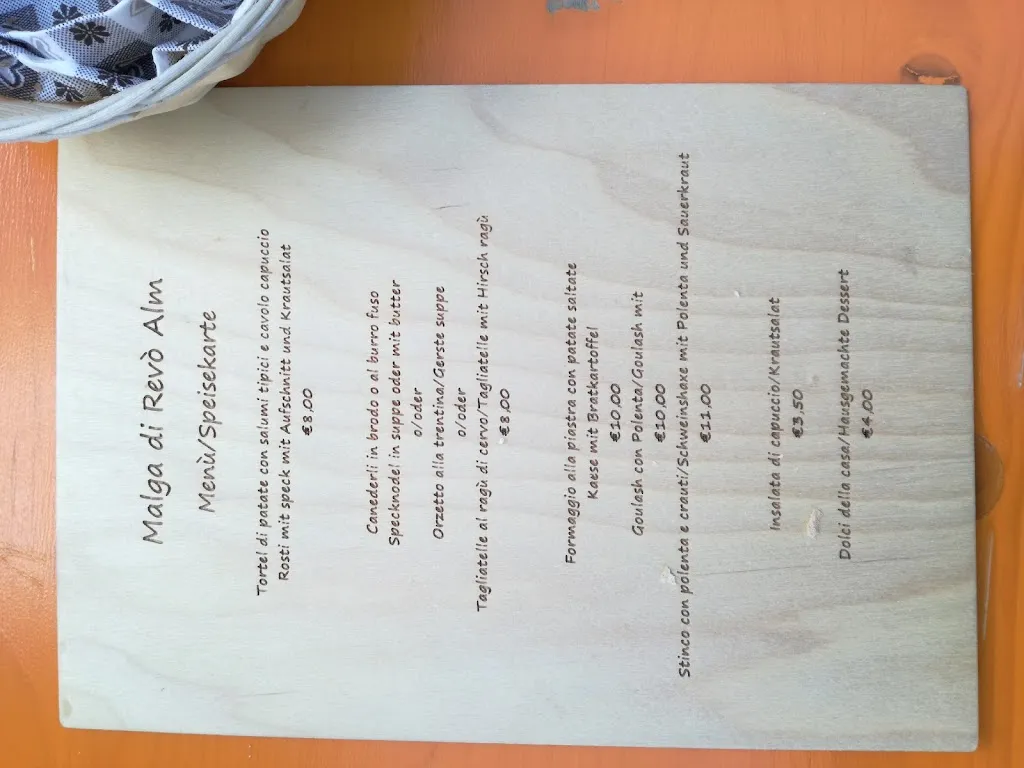 Malga di Revò Alm
Menù/Speisekarte
Tortel di patate con salumi tipici e cavolo capuccio
Rosti mit speck mit Aufschnitt und Krautsalat
€8,00
Canederli in brodo o al burro fuso
Specknodel in suppe oder mit butter
o/oder
Orzetto alla trentina/Gerste suppe
o/oder
Tagliatelle al ragù di cervo/Tagliatelle mit Hirsch ragù
€8,00
Formaggio alla piastra con patate saltate
Kaese mit Bratkartoffel
€10,00
Goulash con Polenta/Goulash mit
€10,00
Stinco con polenta e crauti/Schweinshaxe mit Polenta und Sauerkraut
€11,00
Insalata di capuccio/Krautsalat
€3,50
Dolci della casa/Hausgemachte Dessert
€4,00